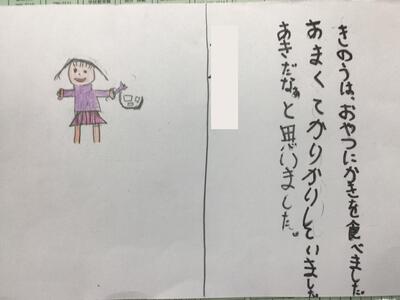 きのうは、おやつにかきを食べました。
あまくてかりかりしていました。
あきだなぁと思いました。